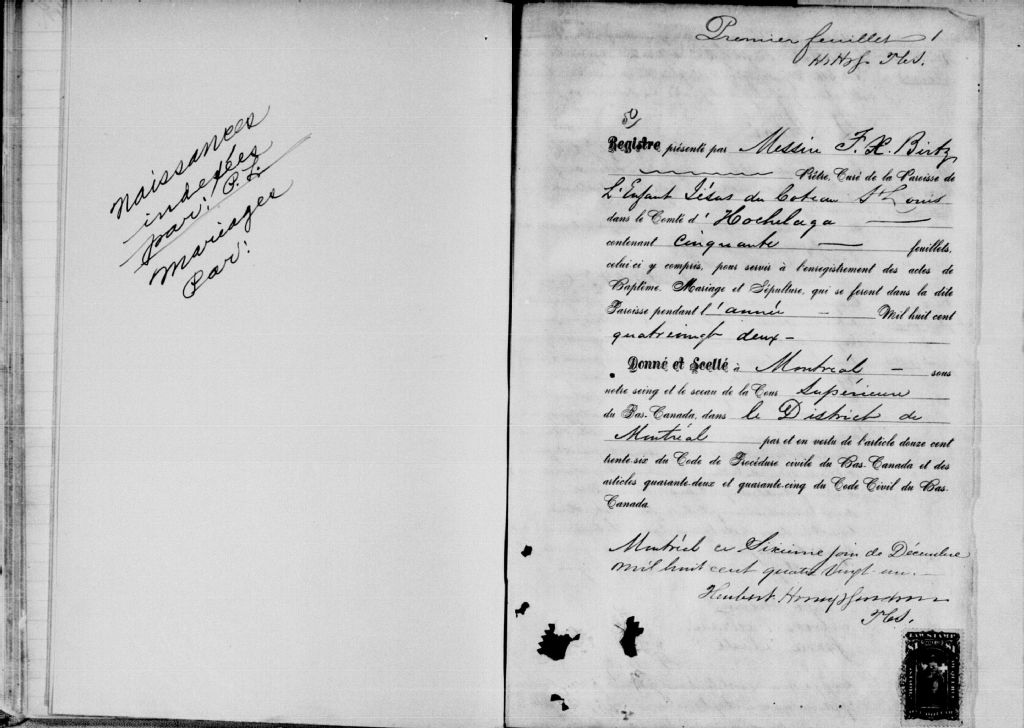 naissances
indexées
par: P. L.
Mariages
Par:
Premier feuillet 1
50
Registre présenté par Messire F. X. Birtz
Prêtre, Curé de la Paroisse de
L'Enfant Jésus du Coteau St Louis
dans le Comté d' Hochelaga
contenant cinquante feuillets,
celui-ci y compris, pour servir à l'enregistrement des actes de
Baptême, Mariage et Sépulture, qui se feront dans la dite
Paroisse pendant l'année Mil huit cent
quatrevingt deux -
Donné et Scellé à Montréal - sous
notre seing et le sceau de la Cour Supérieure
du Bas-Canada, dans le District de
Montréal par et en vertu de l'article douze cent
trente-six du Code de Procédure civile du Bas-Canada et des
articles quarante-deux et quarante-cinq du Code Civil du Bas-
Canada.
Montréal ce Sixième jour de Décembre
mil huit cent quatre vingt-un. -
LAW STAMP
$1 $1